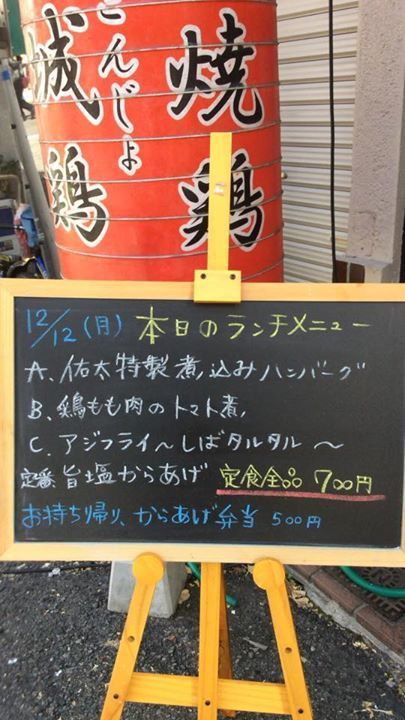 焼鶏
こんじょ
城鶏
12/12(月) 本日のランチメニュー
A、佑太特製煮込みハンバーグ
B、鶏もも肉のトマト煮、
C、アジフライ〜しばタルタル〜
定番、旨塩からあげ 定食全品 700円
お持ち帰り、からあげ弁当 500円